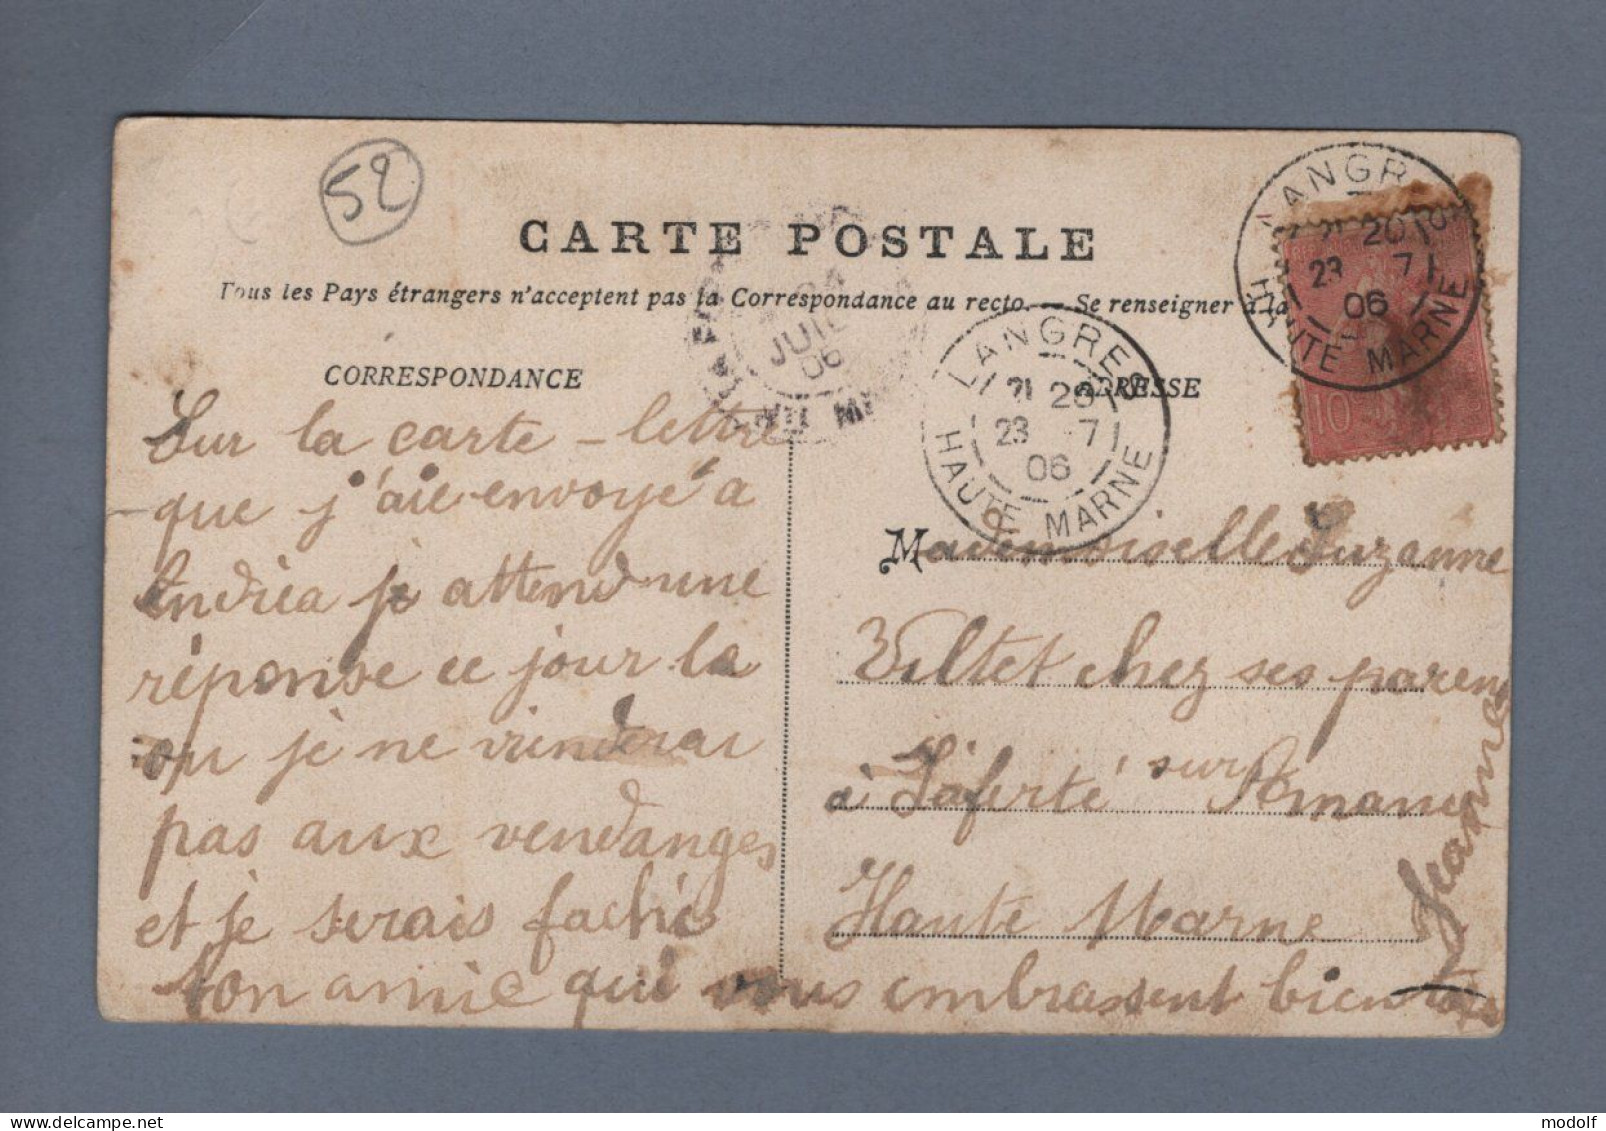 52
CARTE POSTALE
Tous les Pays étrangers n'acceptent pas la Correspondance au recto. — Se renseigner à la
CORRESPONDANCE
ADRESSE
LANGRES
21 20
23 7
06
HAUTE MARNE
LANGRES
21 20
23 -7
06
HAUTE MARNE
JUIL
06
10
Sur la carte - lettre
que j'aie envoyé a
Andréa je attend une
réponse ce jour la
ou je ne viendrai
pas aux vendanges
et je serais fachés
ton amie qui vous embrassent bien
Mademoiselle Suzanne
Viltet chez ses parent
à Laferté sur
Haute Marne
modolf